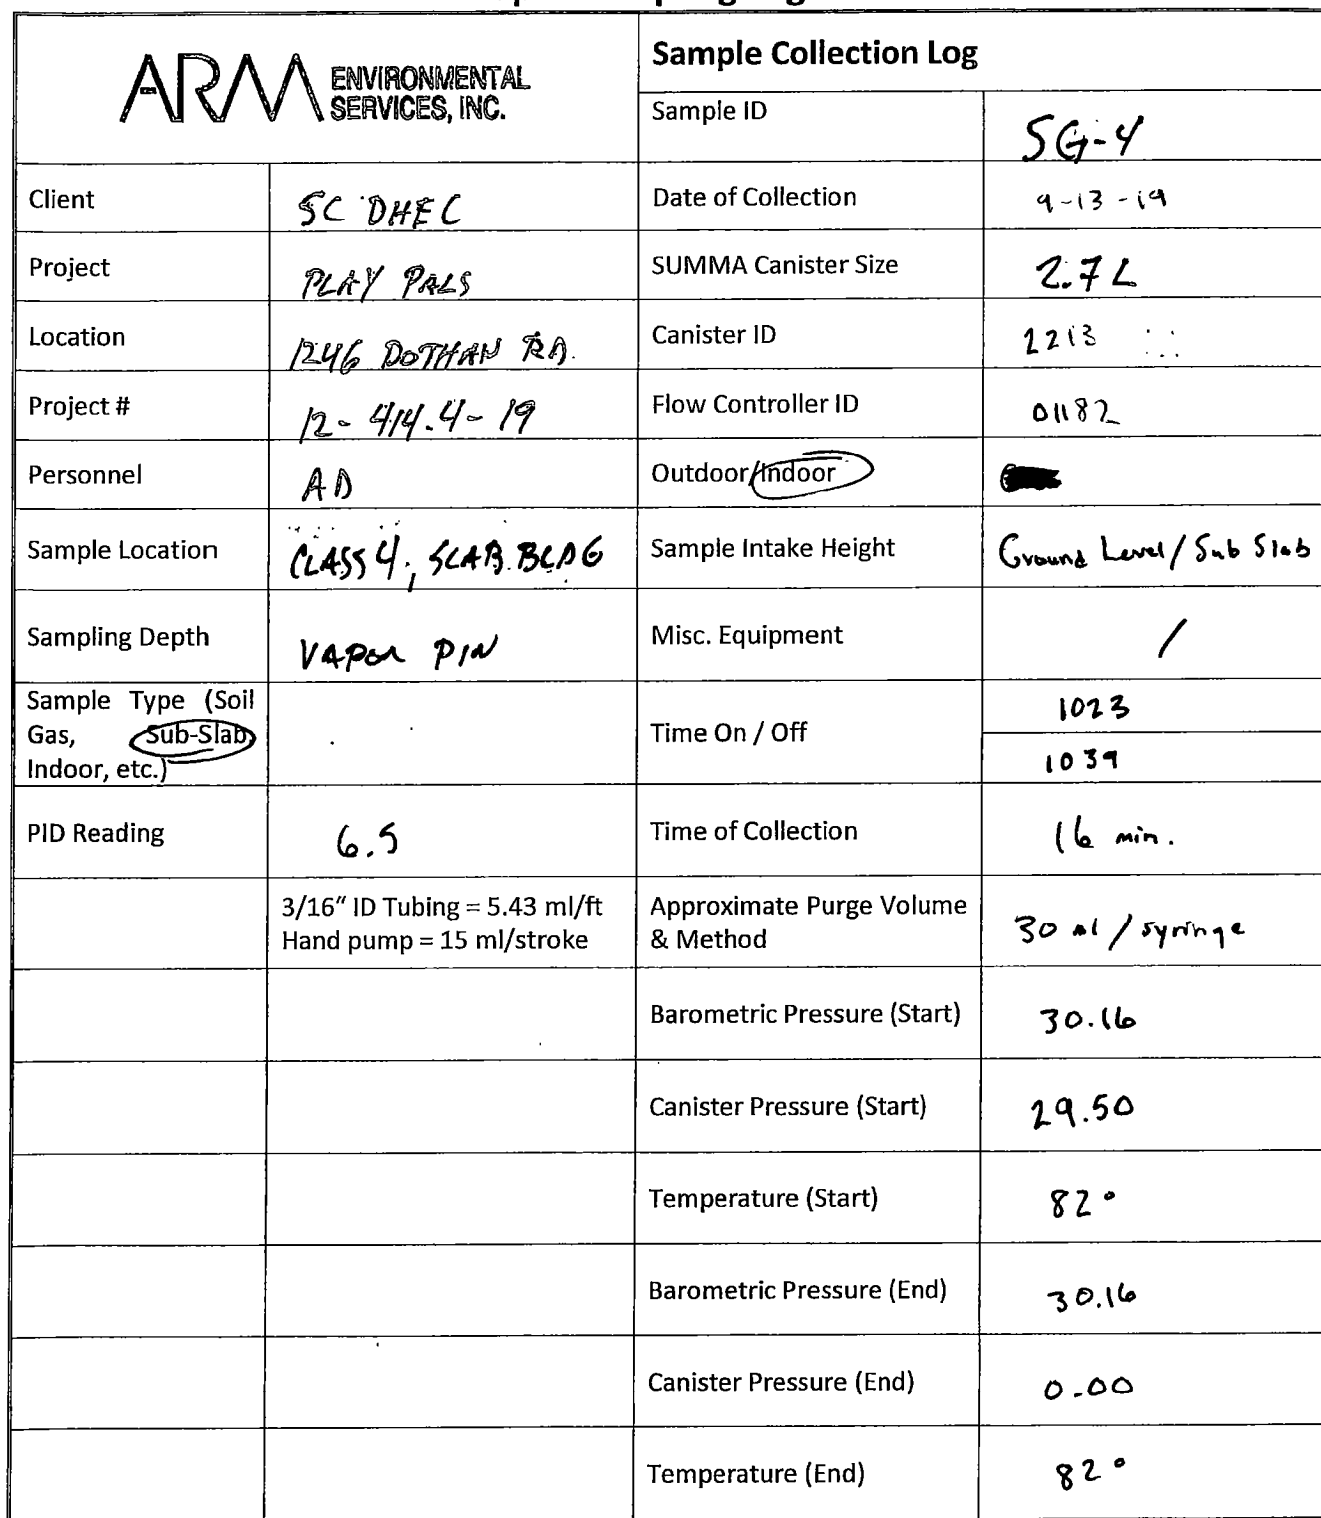 ARM ENVIRONMENTAL
SERVICES, INC.
Sample Collection Log
Sample ID
SG-4
Client
SC DHEC
Date of Collection
9-13-19
Project
PLAY PALS
SUMMA Canister Size
2.7 L
Location
1246 DOTHAN RD.
Canister ID
2213
Project #
12-414.4-19
Flow Controller ID
01182
Personnel
AD
Outdoor/Indoor
Sample Location
CLASS 4, SLAB BLDG
Sample Intake Height
Ground Level/Sub Slab
Sampling Depth
VAPOR PIN
Misc. Equipment
/
Sample Type (Soil
Gas, Sub-Slab,
Indoor, etc.)
Time On / Off
1023
1039
PID Reading
6.5
Time of Collection
16 min.
3/16" ID Tubing = 5.43 ml/ft
Hand pump = 15 ml/stroke
Approximate Purge Volume
& Method
30 ml / syringe
Barometric Pressure (Start)
30.16
Canister Pressure (Start)
29.50
Temperature (Start)
82°
Barometric Pressure (End)
30.16
Canister Pressure (End)
0.00
Temperature (End)
82°